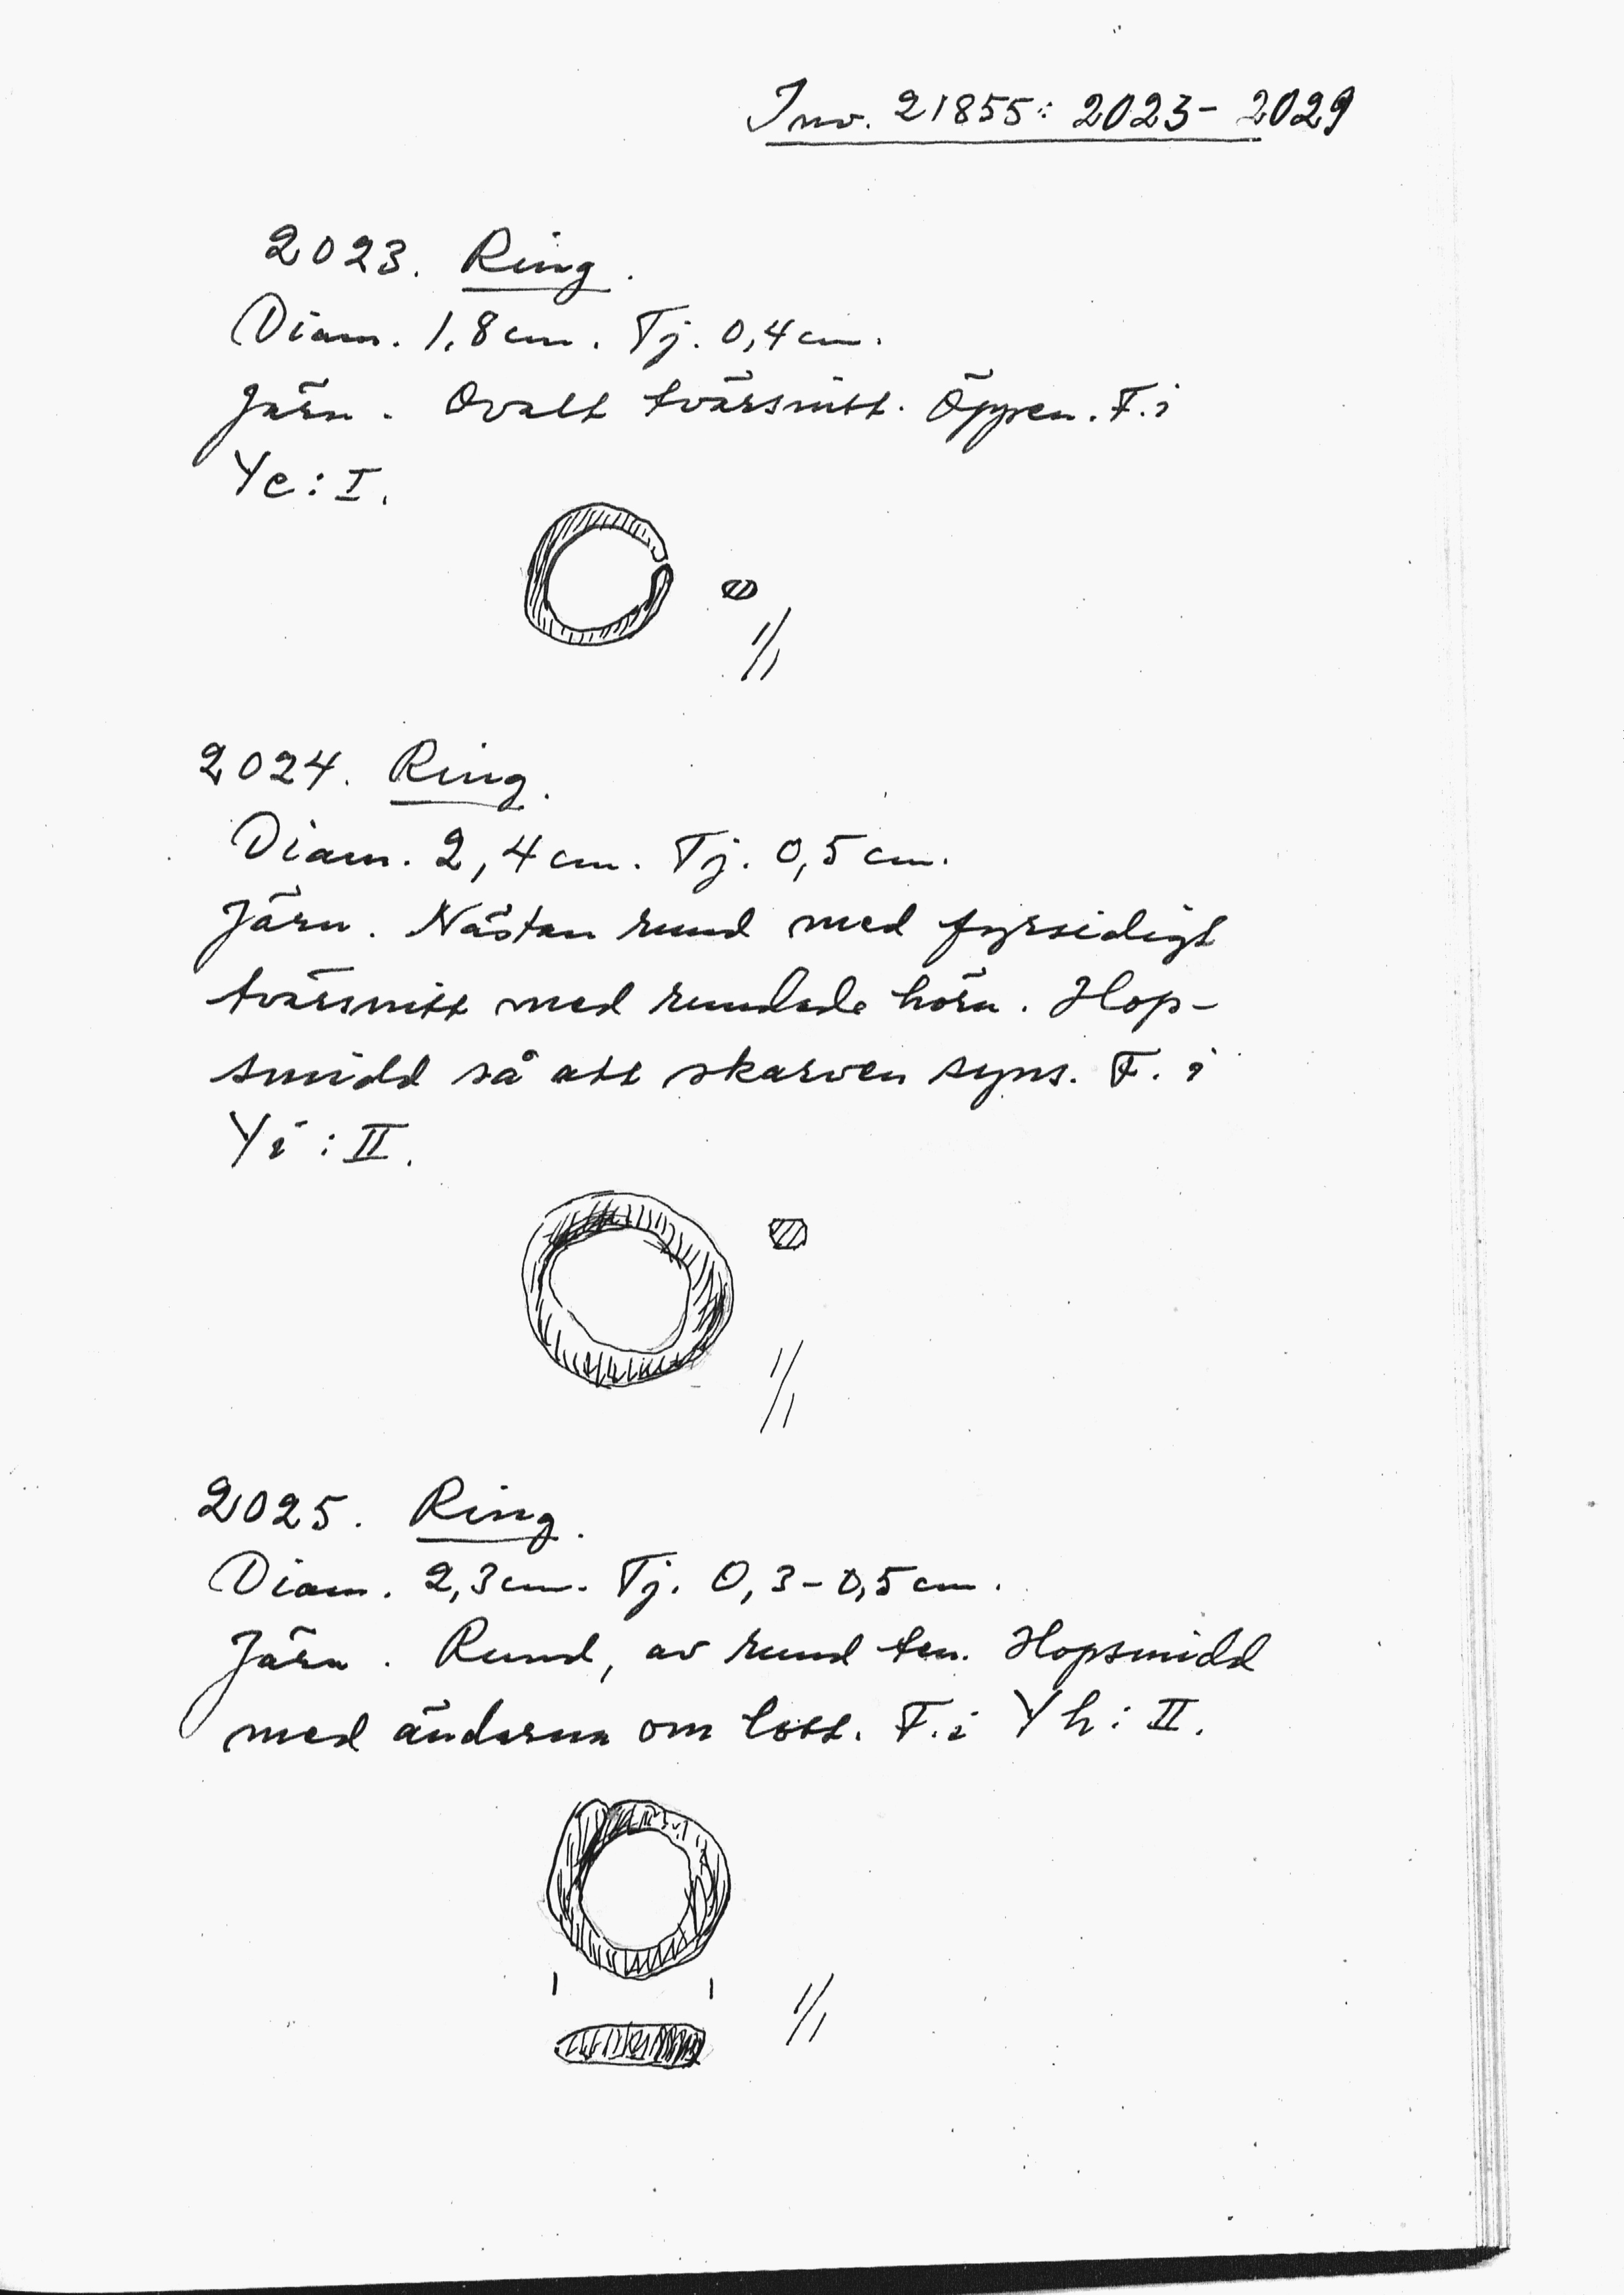 Inv. 21855: 2023-2029
2023. Ring.
Diam. 1,8 cm. Tj. 0,4 cm.
Järn. Ovalt tvärsnitt. Öppen. F. i
Ye: I.
1/1
2024. Ring.
Diam. 2,4 cm. Tj. 0,5 cm.
Järn. Nästan rund med fyrsidigt
tvärsnitt med rundade hörn. Hop-
smidd så att skarven syns. F. i
Yi: II.
1/1
2025. Ring.
Diam. 2,3 cm. Tj. 0,3-0,5 cm.
Järn. Rund, av rund ten. Hopsmidd
med ändarna om lott. F. i Yh: II.
1/1